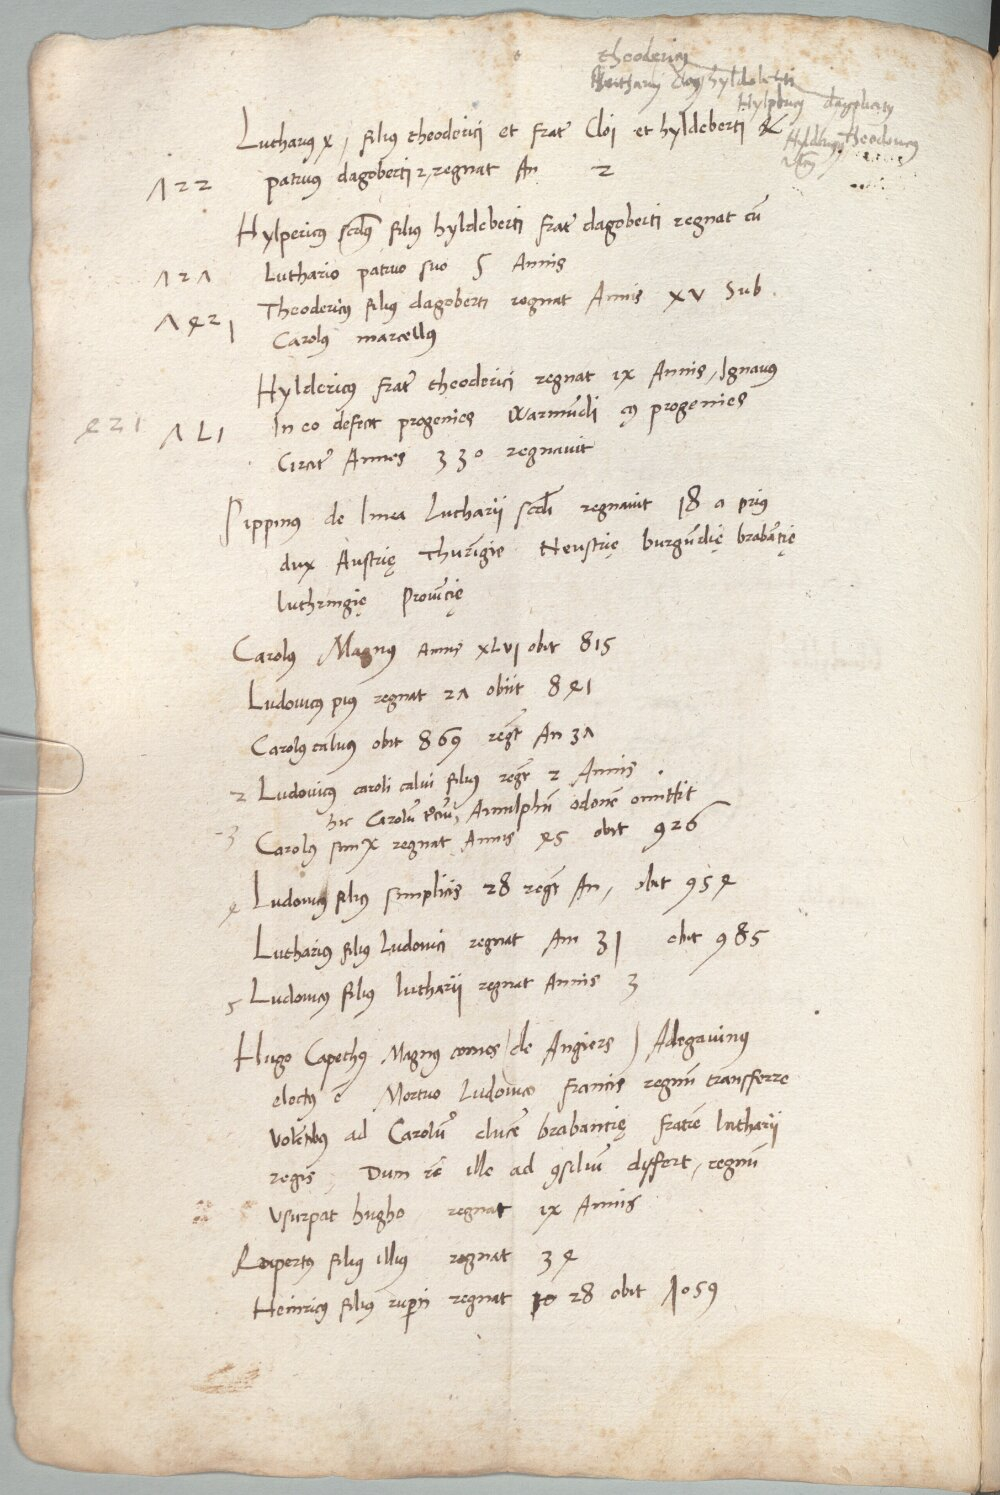 theodericus
Lutharius Cloius hyldeberti
Hylpricus dagobertus
Hyldericus theodericus
Lutharius x, filius theoderici et frater Cloi et hyldeberti &
122 patruus dagoberti 2, regnat An 2
Hylpericus scdus filius hyldeberti frater dagoberti regnat cum
727 Luthario patruo suo 5 Annis
Theodericus filius dagoberti regnat Annis XV Sub
741 Carolus marcellus
Hyldericus frater theoderici regnat IX Annis, Ignauus
In eo defecit progenies Warmundi cuius progenies
Circiter Annos 330 regnauit
Pippinus de linea Lutharii scdi regnauit 18 a prius
dux Austrię Thuringie Neustrię burgundię brabantię
luthringię Prouincię
Carolus Magnus Annis XLVI obit 815
Ludouicus pius regnat 27 obiit 841
Carolus caluus obit 869 regt An 37
2 Ludouicus caroli calui filius regt 2 Annis
hic Carolum 3cium, Arnulphum odonem omittit
3 Carolus simplex regnat Annis 45 obit 926
4 Ludouicus filius simplicis 28 regt An, obit 954
Lutharius filius Ludouici regnat Ann 31 obit 985
5 Ludouicus filius lutharii regnat Annis 3
Hugo Capethus Magnus comes (de Angiers) Adegauinus
electus e Mortuo Ludouico francis regnum transferre
volentibus ad Carolum ducem brabantię fratrem lutharii
regis, Dum rem ille ad 9silium differt, regnum
vsurpat hugho regnat IX Annis
Rupertus filius illius regnat 34
Heinricus filius ruperti regnat 28 obit 1059